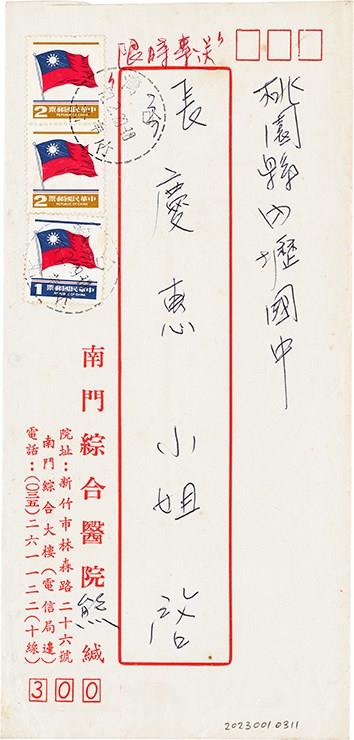 限時專送
桃園縣內壢國中
張慶惠小姐 啓
中華民國郵票
REPUBLIC OF CHINA
2
中華民國郵票
REPUBLIC OF CHINA
2
中華民國郵票
REPUBLIC OF CHINA
1
南門綜合醫院 熊 緘
院址：新竹市林森路二十六號
南門綜合大樓（電信局邊）
電話：（〇三五）二六一一二二（十線）
300
2023001 0311